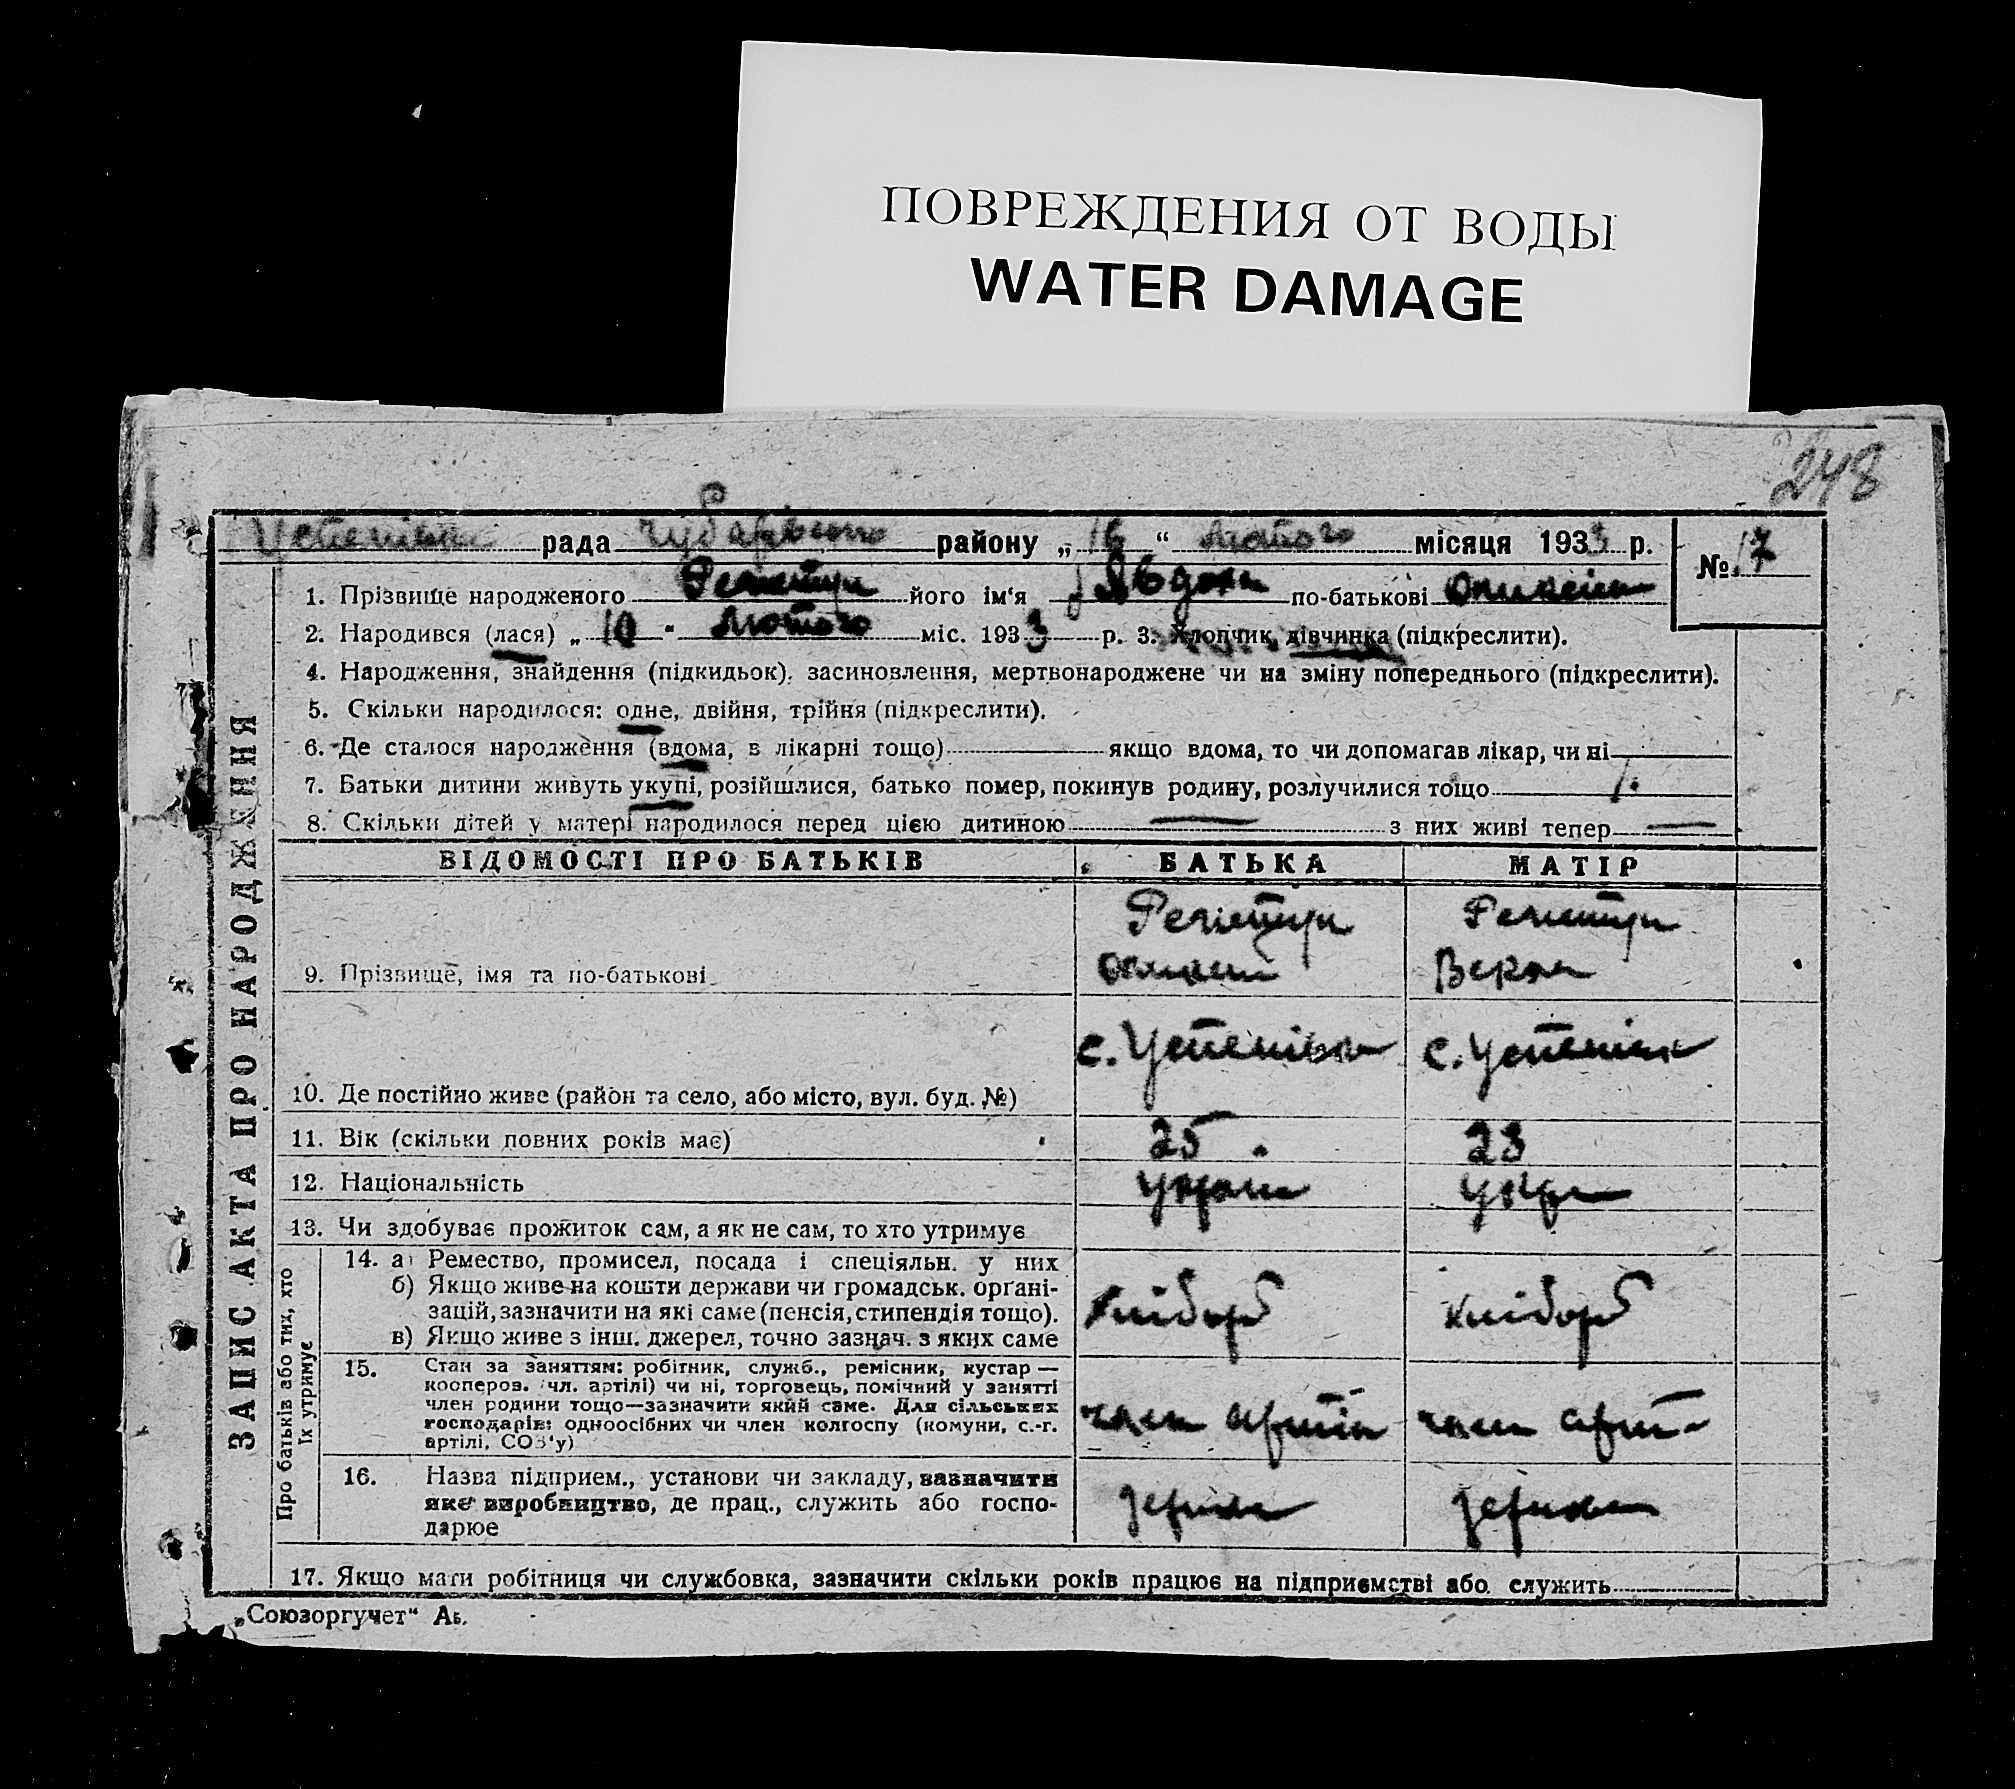 ПОВРЕЖДЕНИЯ ОТ ВОДЫ
WATER DAMAGE
248
рада Чубарівського району „ 16 “ лютого місяця 1933 р.
№ 17
1. Прізвище народженого його ім‘я Явдоха по-батькові
2. Народився (лася) „ 10 “ лютого міс. 1933 р. 3. Хлопчик, дівчинка (підкреслити).
4. Народження, знайдення (підкидьок), засиновлення, мертвонароджене чи на зміну попереднього (підкреслити).
5. Скільки народилося: одне, двійня, трійня (підкреслити).
6. Де сталося народження (вдома, в лікарні тощо) якщо вдома, то чи допомагав лікар, чи ні
7. Батьки дитини живуть укупі, розійшлися, батько помер, покинув родину, розлучилися тощо
8. Скільки дітей у матері народилося перед цією дитиною — з них живі тепер —
ЗАПИС АКТА ПРО НАРОДЖЕННЯ
ВІДОМОСТІ ПРО БАТЬКІВ БАТЬКА МАТІР
9. Прізвище, імя та по-батькові
с. Успенівка с. Успенівк
10. Де постійно живе (район та село, або місто, вул. буд. №)
11. Вік (скільки повних років має) 25 23
12. Національність
13. Чи здобуває прожиток сам, а як не сам, то хто утримує
Про батьків або тих, хто
їх утримує
14. а) Ремество, промисел, посада і спеціяльн. у них
б) Якщо живе на кошти держави чи громадськ. орґані-
зацій, зазначити на які саме (пенсія, стипендія тощо).
в) Якщо живе з інш. джерел, точно зазнач. з яких саме
хлібороб хлібороб
15. Стан за заняттям: робітник, служб., ремісник, кустар —
коопeров. (чл. артілі) чи ні, торговець, помічний у занятті
член родини тощо—зазначити який саме. Для сільських
господарів: одноосібних чи член колгоспу (комуни, с.-г.
артілі, СОЗ‘у)
член артілі член арт
16. Назва підприєм., установи чи закладу, зазначити
яке виробництво, де прац., служить або госпо-
дарює
17. Якщо мати робітниця чи службовка, зазначити скільки років працює на підприємстві або служить
„Союзоргучет“ Аь.